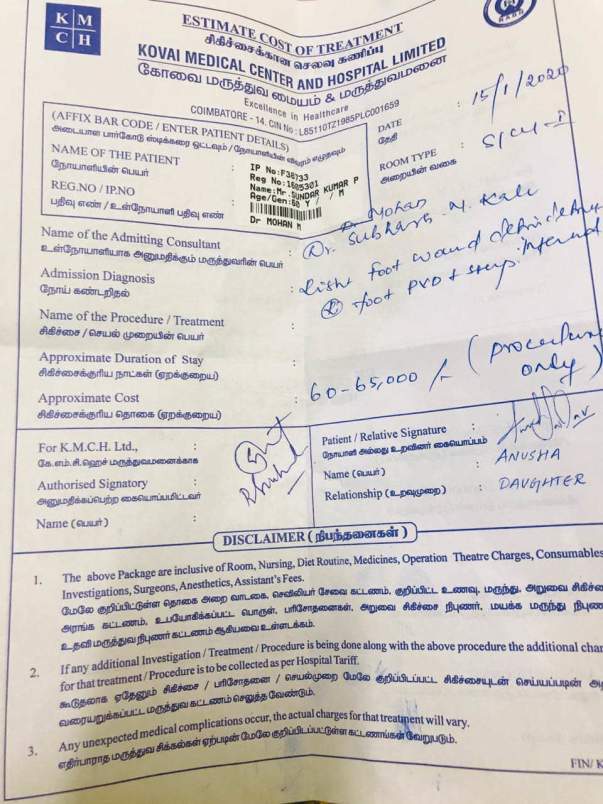 K M
C H
NABH
ESTIMATE COST OF TREATMENT
சிகிச்சைக்கான செலவு கணிப்பு
KOVAI MEDICAL CENTER AND HOSPITAL LIMITED
கோவை மருத்துவ மையம் & மருத்துவமனை
Excellence in Healthcare
COIMBATORE - 14. CIN No : L85110TZ1985PLC001659
(AFFIX BAR CODE / ENTER PATIENT DETAILS)
அடையாள பார்கோடு ஸ்டிக்கரை ஒட்டவும் / நோயாளியின் விவரம் எழுதவும்
NAME OF THE PATIENT :
நோயாளியின் பெயர்
REG.NO / IP.NO :
பதிவு எண் / உள்நோயாளி பதிவு எண்
IP No:F36733
Reg No:1605301
Name:Mr.SUNDAR KUMAR P
Age/Gen:60 Y / / M
Dr MOHAN M
DATE : 15/1/2020
தேதி
ROOM TYPE :
அறையின் வகை
Name of the Admitting Consultant : Dr. Mohan
உள்நோயாளியாக அனுமதிக்கும் மருத்துவரின் பெயர் Dr. Subhash. Y. Kale
Admission Diagnosis :
நோய் கண்டறிதல்
foot wound
foot PVD +
Name of the Procedure / Treatment :
சிகிச்சை / செயல் முறையின் பெயர்
Approximate Duration of Stay :
சிகிச்சைக்குரிய நாட்கள் (ஏறக்குறைய)
Approximate Cost : 60-65,000/- (procedure only)
சிகிச்சைக்குரிய தொகை (ஏறக்குறைய)
For K.M.C.H. Ltd., :
கே.எம்.சி.ஹெச் மருத்துவமனைக்காக
Authorised Signatory :
அனுமதிக்கப்பெற்ற கையொப்பமிட்டவர்
Name (பெயர்) :
Patient / Relative Signature :
நோயாளி அல்லது உறவினர் கையொப்பம்
Name (பெயர்) : ANUSHA
Relationship (உறவுமுறை) : DAUGHTER
DISCLAIMER ( நிபந்தனைகள் )
1. The above Package are inclusive of Room, Nursing, Diet Routine, Medicines, Operation Theatre Charges, Consumables
Investigations, Surgeons, Anesthetics, Assistant's Fees.
மேலே குறிப்பிட்டுள்ள தொகை அறை வாடகை, செவிலியர் சேவை கட்டணம், குறிப்பிட்ட உணவு, மருந்து, அறுவை சிகிச்சை
அரங்க கட்டணம், உபயோகிக்கப்பட்ட பொருள், பரிசோதனைகள், அறுவை சிகிச்சை நிபுணர், மயக்க மருந்து நிபுண
உதவி மருத்துவ நிபுணர் கட்டணம் ஆகியவை உள்ளடக்கம்.
2. If any additional Investigation / Treatment / Procedure is being done along with the above procedure the additional char
for that treatment / Procedure is to be collected as per Hospital Tariff.
கூடுதலாக ஏதேனும் சிகிச்சை / பரிசோதனை / செயல்முறை மேலே குறிப்பிடப்பட்ட சிகிச்சையுடன் செய்யப்படின் அ
வரையறுக்கப்பட்ட மருத்துவ கட்டணம் செலுத்த வேண்டும்.
3. Any unexpected medical complications occur, the actual charges for that treatment will vary.
எதிர்பாராத மருத்துவ சிக்கல்கள் ஏற்படின் மேலே குறிப்பிடப்பட்டுள்ள கட்டணங்கள் வேறுபடும்.
FIN/ K